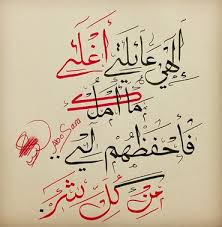 إلهي عائلتي أغلى
ما أملك
فأحفظهم لي
من كل شر